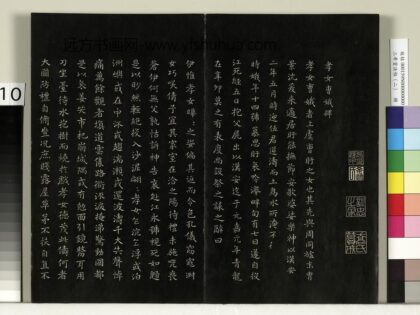 远方书画网-www.yfshuhua.com
孝女曹娥碑
孝女曹娥者上虞曹盱之女也其先與周同祖末胄
景沈爰來適居盱能撫節安歌婆娑樂神以漢安
二年五月時迎伍君逆濤而上為水所淹不
時娥年十四號慕思盱哀吟澤畔旬有七日遂自投
江死經五日抱父屍出以漢安迄于元嘉元年青龍
在辛卯莫之有表度尚設祭之誄之辭曰
伊惟孝女曄曄之姿偏其返而令色孔儀窈窕淑
女巧咲倩子宜其家室在洽之陽待禮未施嗟喪
蒼伊何無父孰怙訴神告哀赴江永號視死如歸
是以眇然輕絕投入沙泥翩翩孝女乍沉乍浮或泊
洲嶼或在中流或趨湍瀨或還波濤千夫失聲悼
痛萬餘觀者填道雲集路衢流淚掩涕驚動國都
是以哀姜哭市杞崩城隅或有剋面引鏡
刀坐臺待水抱樹而燒於戲孝女德茂此儔何者
大國防禮自脩豈況庶賤露屋草茅不扶自直不
10